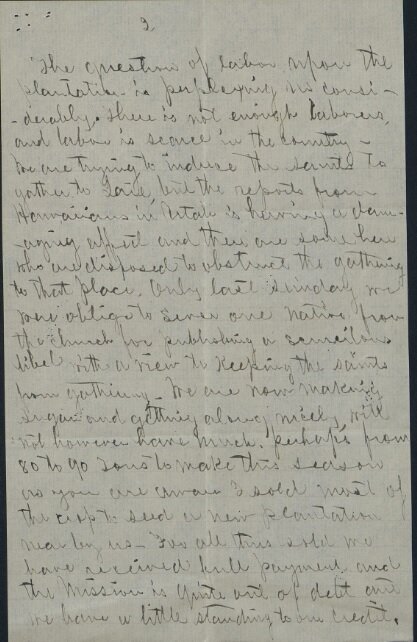 2.
The question of labor upon the
plantation is perplexing us consi-
-derably. There is not enough laborers,
and labor is scarce in the country -
We are trying to induce the saints to
gather to Laie, but the reports from
Hawaiians in Utah is having a dam-
-aging effect and there are some here
who are disposed to obstruct the gathering
to that place. Only last Sunday we
were oblige to sever one native from
the church for publishing a scurilous
libel with a view to keeping the saints
from gathering - We are now making
sugar and getting along nicely, will
not however have much. perhaps from
80 to 90 Tons to make this season
as you are aware I sold most of
the crop to seed a new plantation
near by us - For all this sold we
have received full payment and
the Mission is quite out of debt and
we have a little standing to our credit.